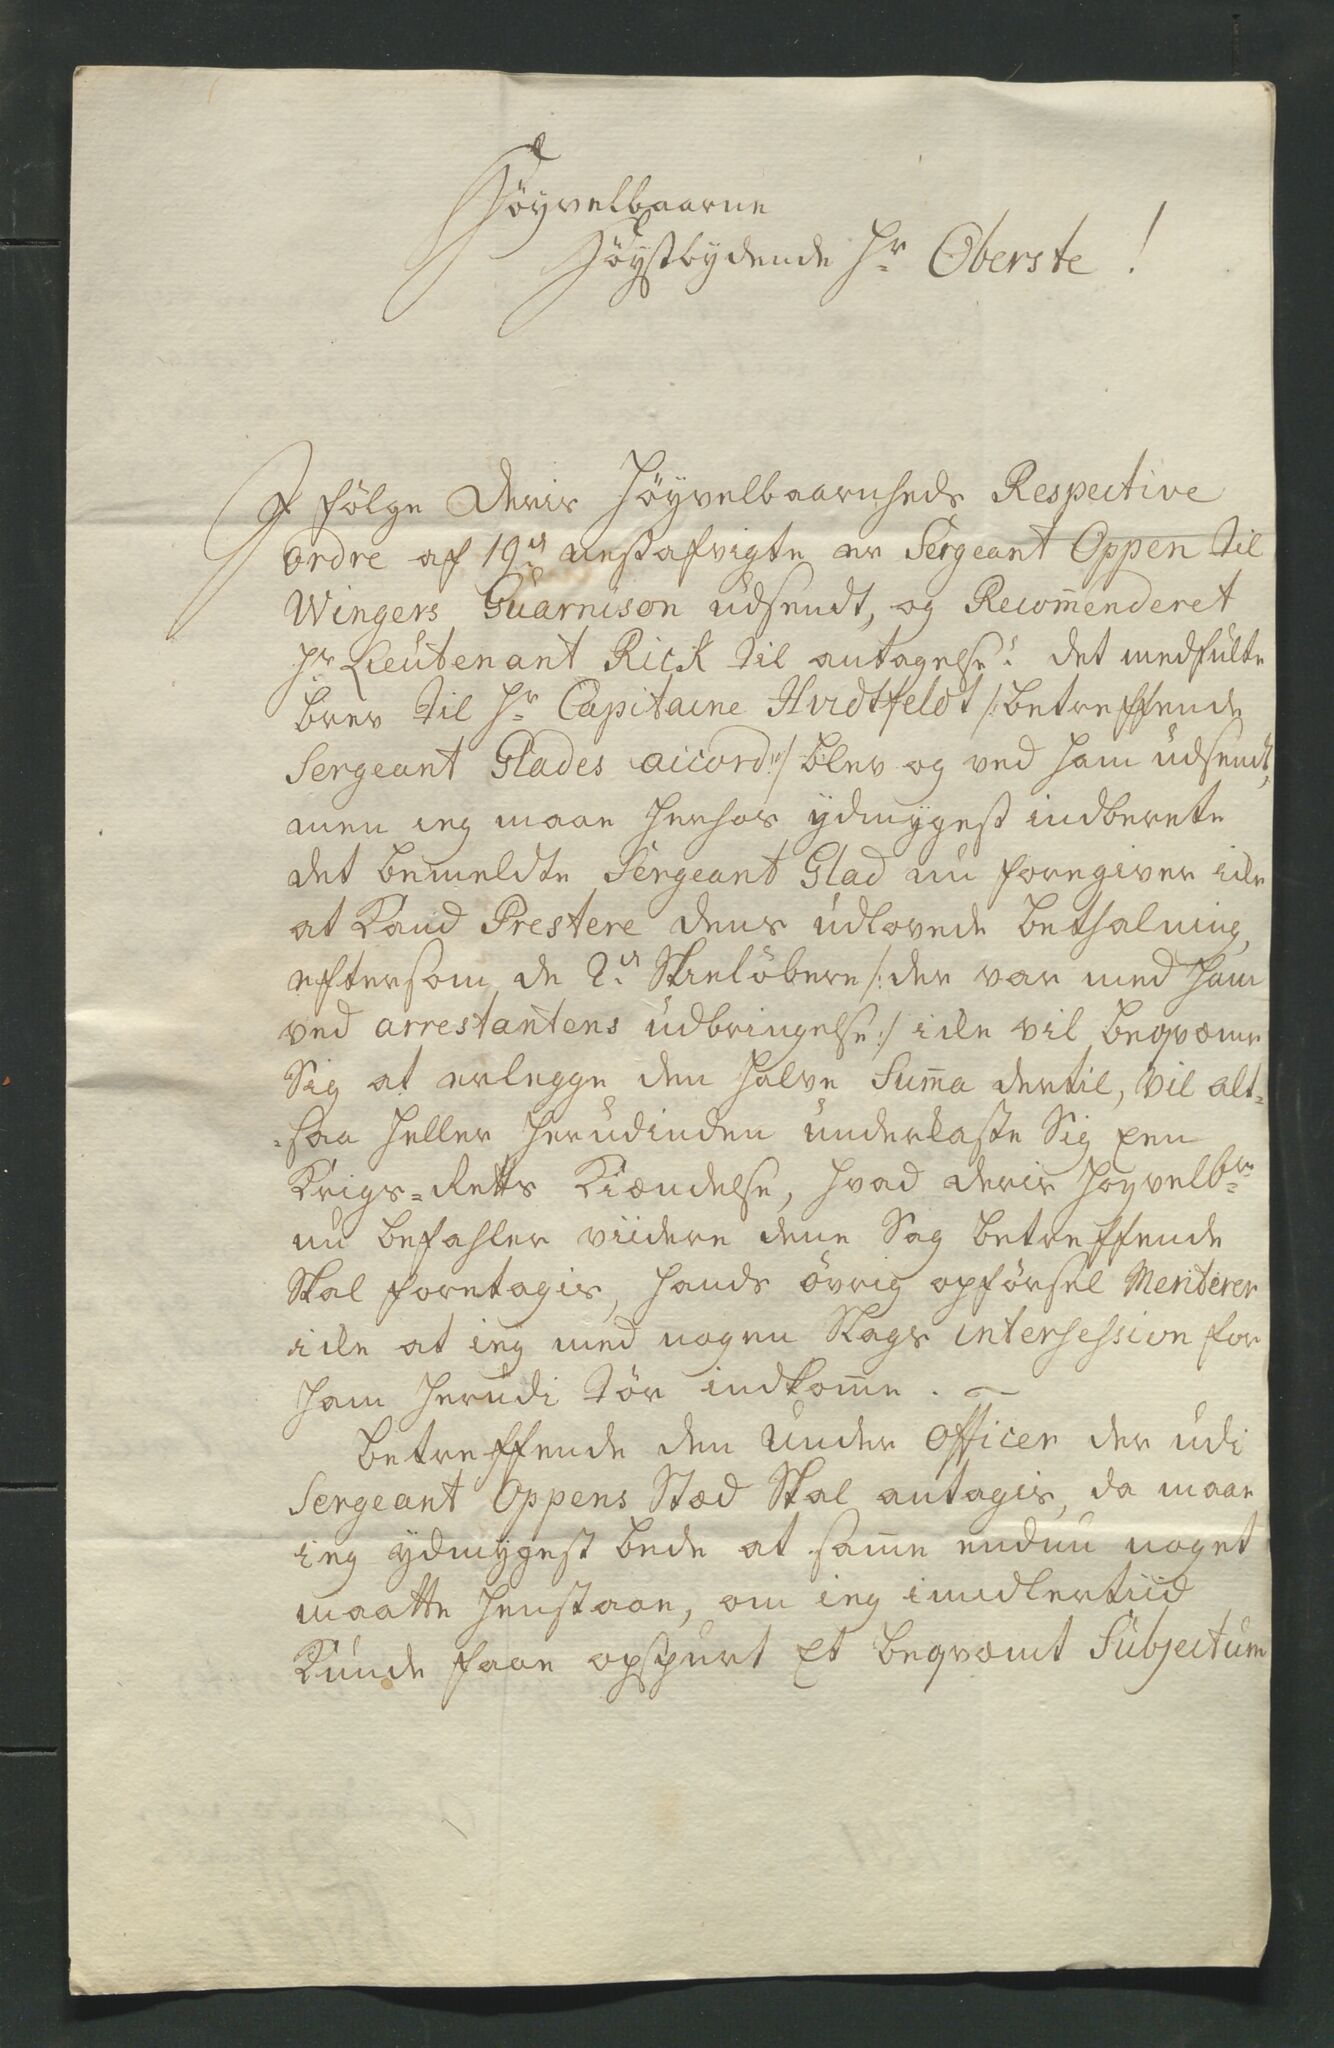 Höyvelbaarne
Höystbydende Hr Oberste!
I fölge Deris Höyvelbaarnheds Respective
ordre af 19de nestafvigte er Sergeant Oppen til
Wingers Guarnison udsendt, og Recom̅enderet
Hr Lieutenant Rick til antagelse: det medfulte
brev til Hr Capitaine Hvidtfeldt /: betreffende
Sergeant Glades accord :/ blev og ved ham udsendt,
men ieg maae herhos ydmygest indberete
det bemeldte Sergeant Glad nu foregiver icke
at kand Prestere dens udlovede bethalning,
eftersom de 2de Skielöbere /: der var med ham
ved arrestantens udbringelse :/ icke vil beqvæme
Sig at erlegge den halve Sum̅a dertil, vil alt-
-saa heller herudinden underkaste Sig een
Krigs-Retts Kiændelse, hvad deris Höyvelb:hd
nu befahler viidere dene Sag betreffende
Skal foretagis, hands övrig opförsel Meriterer
icke at ieg med nogen Slags intersession for
ham herudi tör indkom̅e.
Betreffende den Under Officer der udi
Sergeant Oppens Stæd Skal antagis, da maae
ieg ydmygest bede at sam̅e endnu noget
maatte henstaae, om ieg imidlertiid
Kunde faae opspurt Et beqvæmt Subjectum